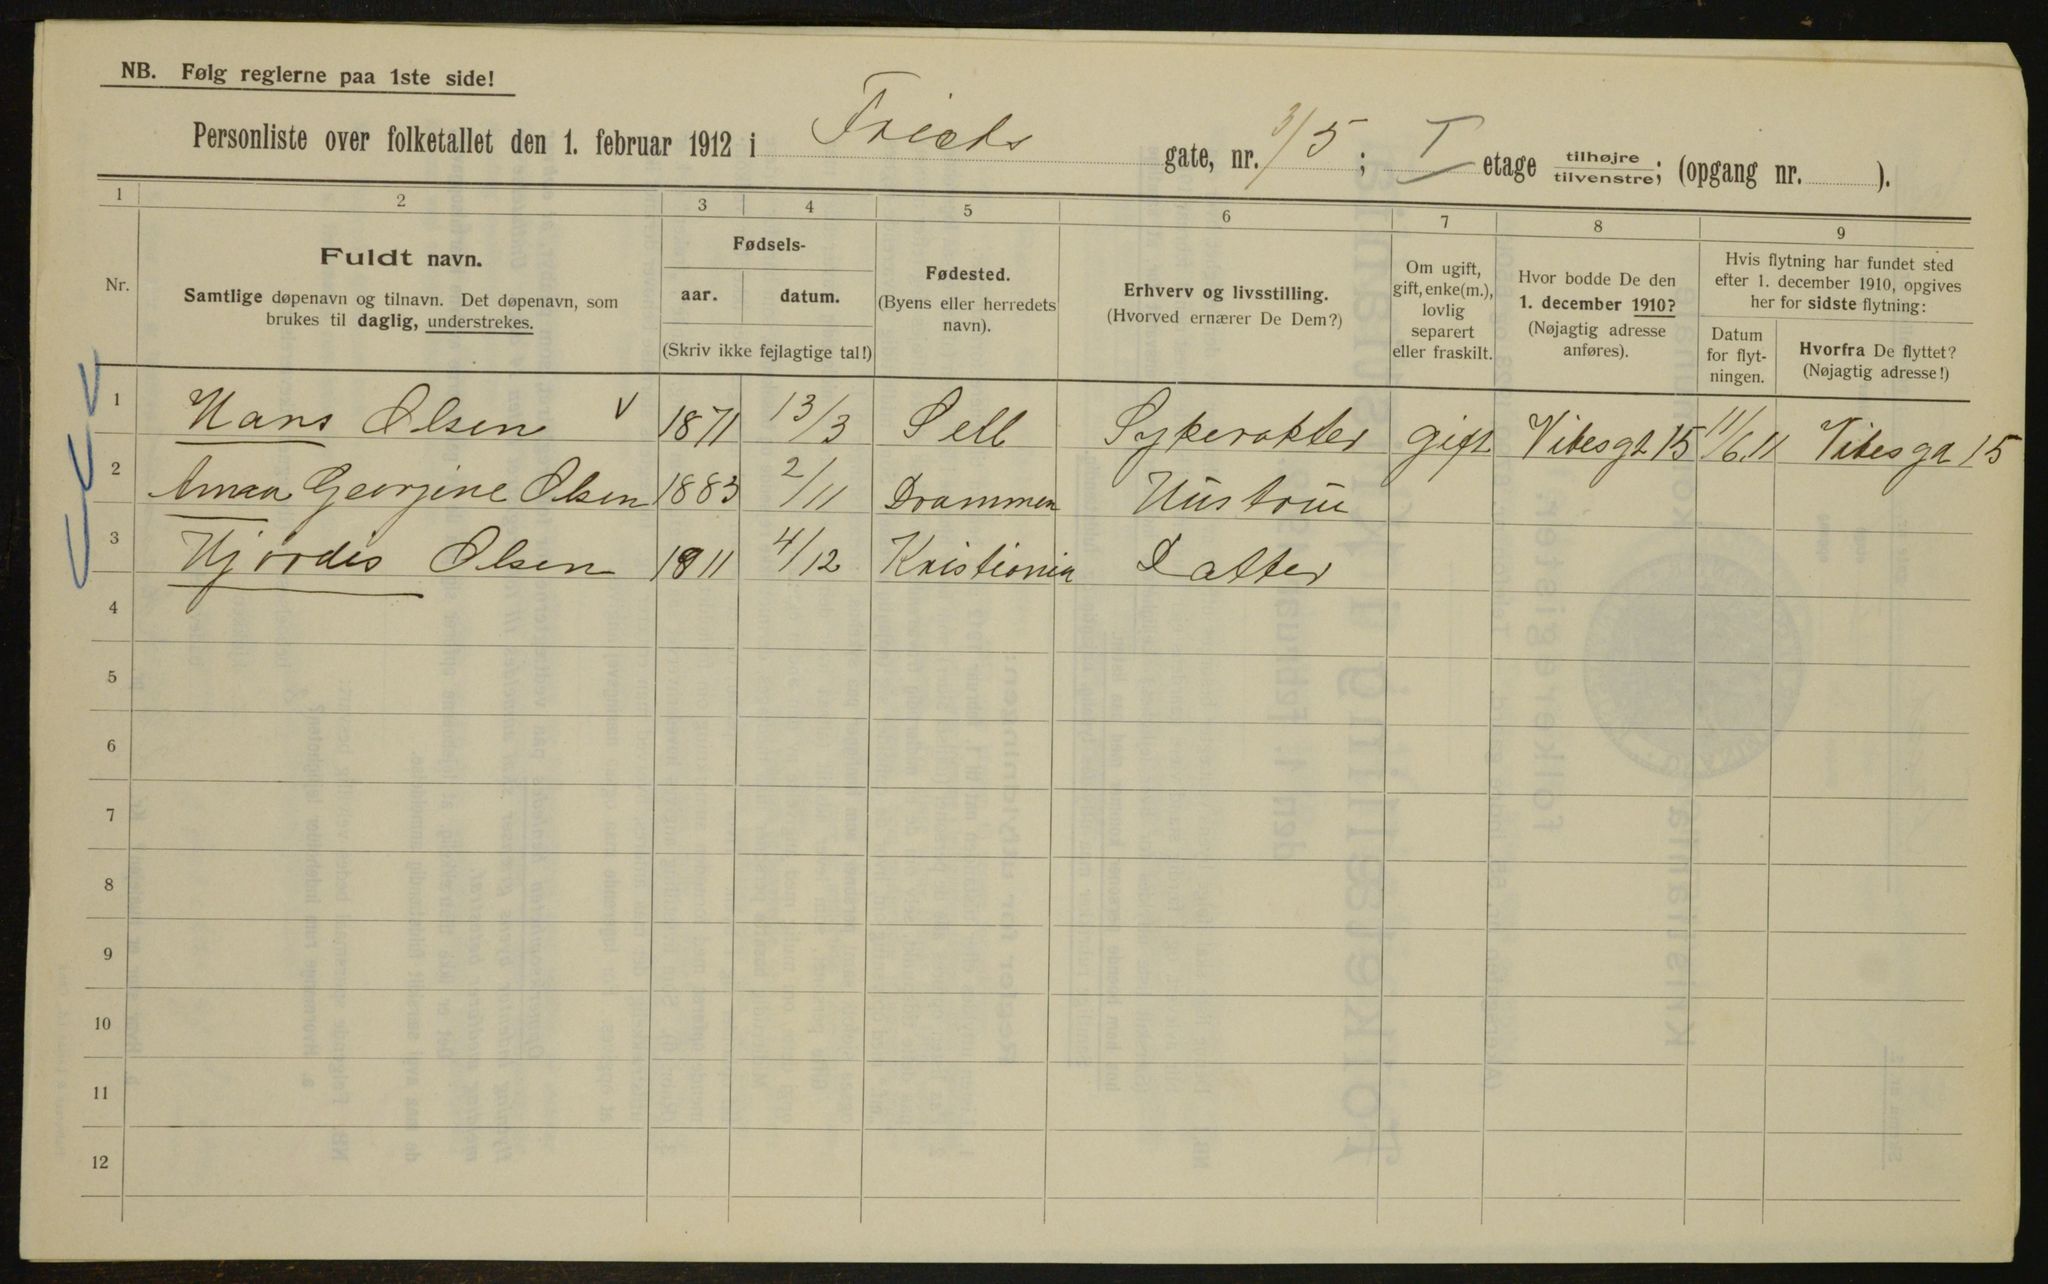 NB. Følg reglerne paa 1ste side!
Personliste over folketallet den 1. februar 1912 i Friels gate, nr. 3/5; I etage tilhøjre/tilvenstre; (opgang nr. ).
1 2 3 4 5 6 7 8 9
Nr.
Fuldt navn.
Samtlige døpenavn og tilnavn. Det døpenavn, som
brukes til daglig, understrekes.
Fødsels-
aar. datum.
(Skriv ikke fejlagtige tal!)
Fødested.
(Byens eller herredets
navn).
Erhverv og livsstilling.
(Hvorved ernærer De Dem?)
Om ugift,
gift, enke(m.),
lovlig
separert
eller fraskilt.
Hvor bodde De den
1. december 1910?
(Nøjagtig adresse
anføres).
Hvis flytning har fundet sted
efter 1. december 1910, opgives
her for sidste flytning:
Datum
for flyt-
ningen.
Hvorfra De flyttet?
(Nøjagtig adresse!)
1 Hans Olsen v 1871 13/3 Sell Sykerokter gift Vibesgt 15 11/6 11 Vibesga 15
2 Anna Georgine Olsen 1883 2/11 Drammen Hustrue
3 Hjørdis Olsen 1911 4/12 Kristiania Datter
4
5
6
7
8
9
10
11
12